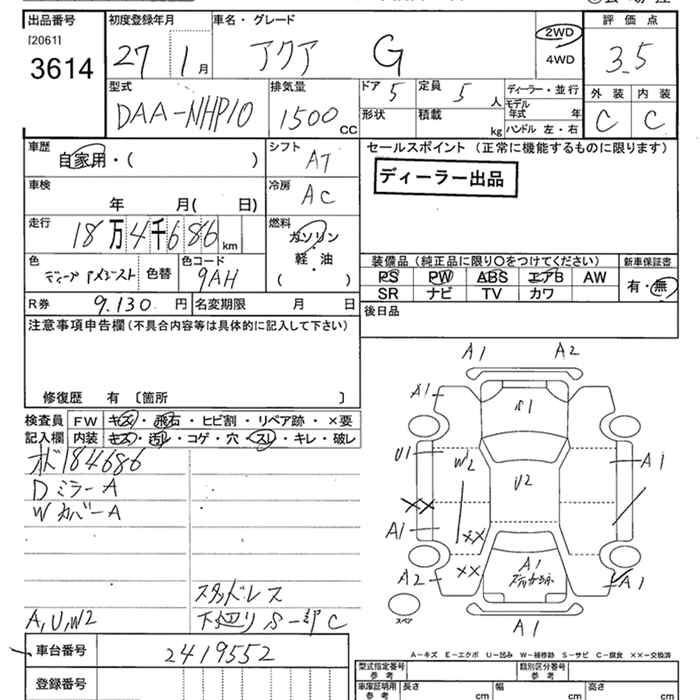 出品番号
[2061]
3614
初度登録年月
27 1月
車名・グレード
アクア G
2WD
4WD
評価点
3.5
型式
DAA-NHP10
排気量
1500cc
ドア 5
定員 5人
形状
積載 kg
ディーラー・並行
モデル年式 年
ハンドル 左・右
外装 内装
C C
車歴
自家用・( )
シフト
AT
セールスポイント (正常に機能するものに限ります)
ディーラー出品
車検
年 月( 日)
冷房
AC
走行
18万4千686km
燃料
ガソリン・軽・油
( )
色
色替
色コード
9AH
装備品(純正品に限り○をつけてください)
新車保証書
PS PW ABS エアB AW
SR ナビ TV カワ
有・無
R券 9.130円
名変期限 月 日
後日品
注意事項申告欄(不具合内容等は具体的に記入して下さい)
修復歴 有 〔箇所 〕
検査員記入欄
FW キズ・飛石・ヒビ割・リペア跡・×要
内装 キズ・汚レ・コゲ・穴・スレ・キレ・破レ
184686
Dミラー A
Wカバー A
スタッドレス
下廻り S-部C
A,U,W2
A1 A2
A1
S1
U1
W2
U2
A1
XX
A1
XX
A2
XX
A1
A1
スペア
A1
車台番号
2419552
A−キズ E−エクボ U−凹み W−補修跡 S−サビ C−腐食 ××−交換済
登録番号
型式指定番号
参考
類別区分番号
参考
車庫証明用
参考
長さ cm
幅 cm
高さ cm